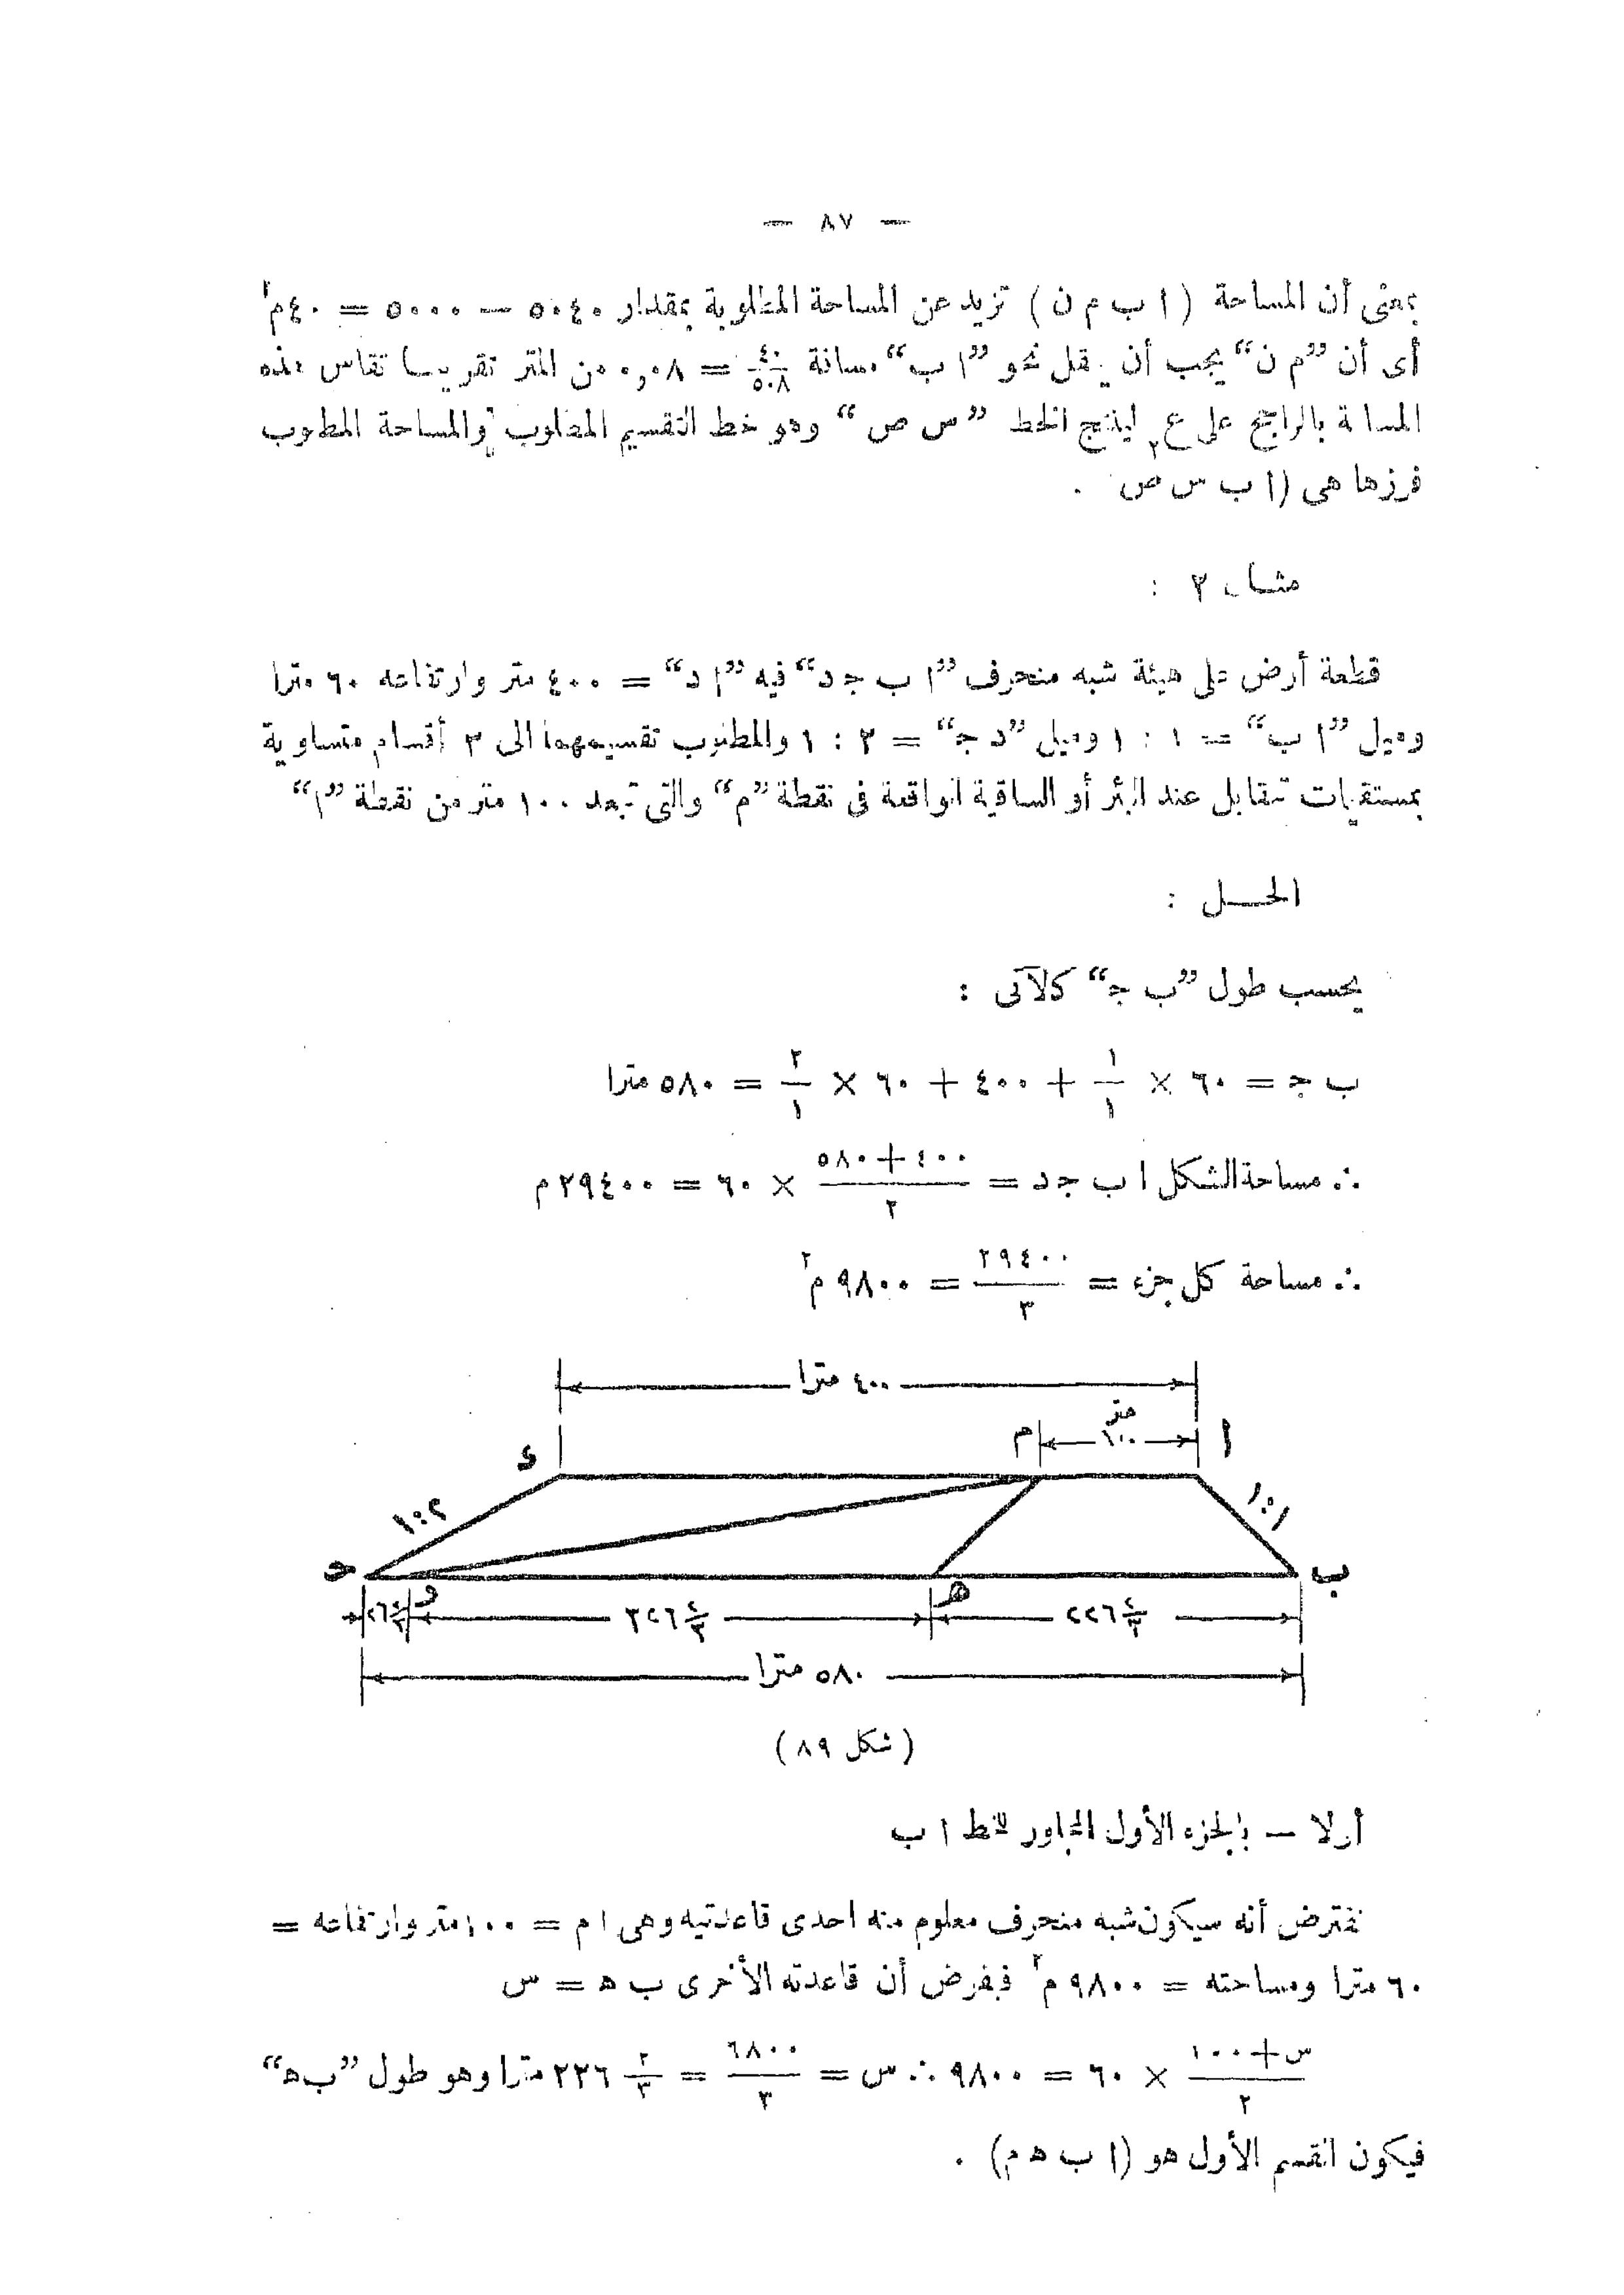 — ٨٧ —
بمعنى أن المساحة ( ا ب م ن ) تزيد عن المساحة المطلوبة بمقدار ٥٠٤٠ — ٥٠٠٠ = ٤٠م٢
أى أن ”م ن“ يجب أن ينقل نحو ”ا ب“ مسافة ٤٠/٥٠٨ = ٠,٠٨ من المتر تقريبا تقاس هذه
المسافة بالراجح على ع٢ لينتج الخط ”س ص“ وهو خط التقسيم المطلوب والمساحة المطلوب
فرزها هى (ا ب س ص .
مثال ٢ :
قطعة أرض على هيئة شبه منحرف ”ا ب ج د“ فيه ”ا د“ = ٤٠٠ متر وارتفاعه ٦٠ مترا
وميل ”ا ب“ = ١ : ١ وميل ”د ج“ = ٢ : ١ والمطلوب تقسيمهما الى ٣ أقسام متساوية
بمستقيمات تتقابل عند البئر أو الساقية الواقعة فى نقطة ”م“ والتى تبعد ١٠٠ متر من نقطة ”ا“
الحــل :
يحسب طول ”ب ج“ كالآتى :
ب ج = ٦٠ × ١/١ + ٤٠٠ + ٦٠ × ٢/١ = ٥٨٠ مترا
∴ مساحة الشكل ا ب ج د = (٤٠٠+٥٨٠)/٢ × ٦٠ = ٢٩٤٠٠م
∴ مساحة كل جزء = ٢٩٤٠٠/٣ = ٩٨٠٠ م٢
٤٠٠ مترا
متر
١٠٠
ا
م
د
١:١
١:٢
ب
ه
و
ج
٢٢٦ ٢/٣
٣٢٦ ٢/٣
٢٦ ٢/٣
٥٨٠ مترا
(شكل ٨٩)
أولا — بالجزء الأول المجاور للخط ا ب
نفترض أنه سيكون شبه منحرف معلوم منه احدى قاعدتيه وهى ا م = ١٠٠متر وارتفاعه =
٦٠ مترا ومساحته = ٩٨٠٠ م٢ فبفرض أن قاعدته الأخرى ب ه = س
(س+١٠٠)/٢ × ٦٠ = ٩٨٠٠ ∴ س = ٦٨٠٠/٣ = ٢٢٦ ٢/٣ مترا وهو طول ”ب ه“
فيكون القسم الأول هو (ا ب ه م) .